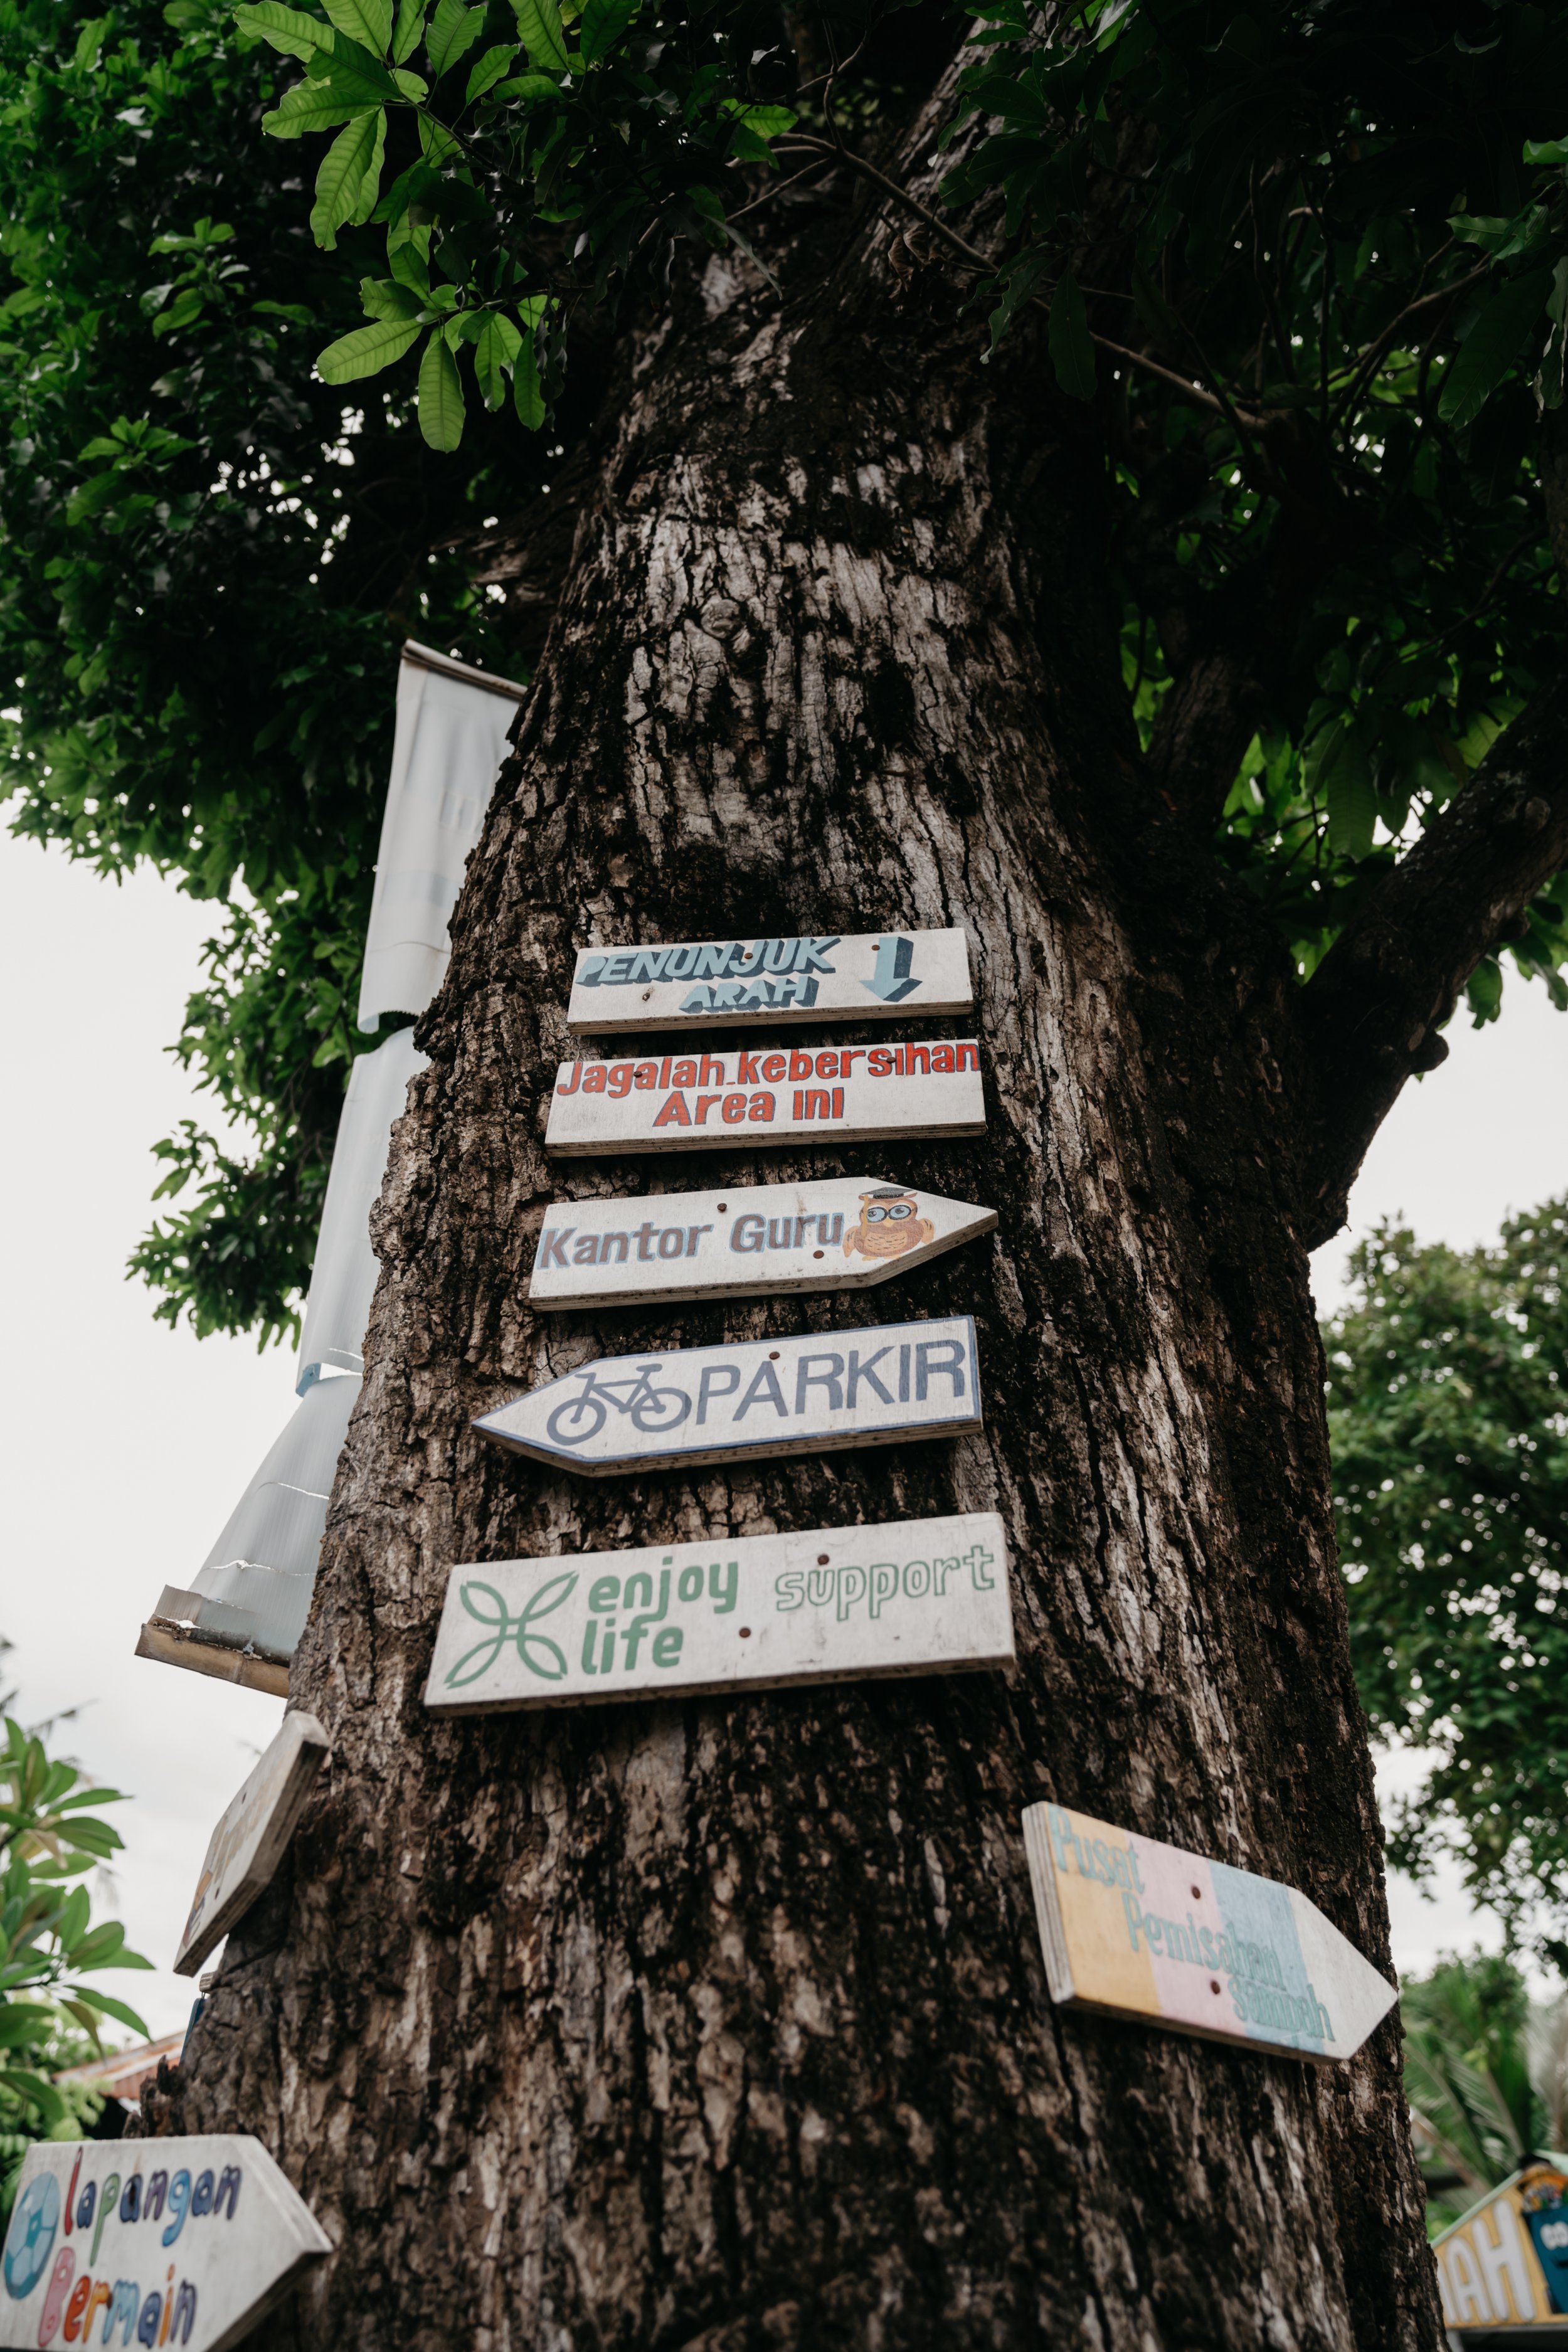 PENUNJUK
ARAH
Jagalah kebersihan
Area ini
Kantor Guru
PARKIR
enjoy support
life
Pusat
Pemisahan
sampah
lapangan
Bermain
AH